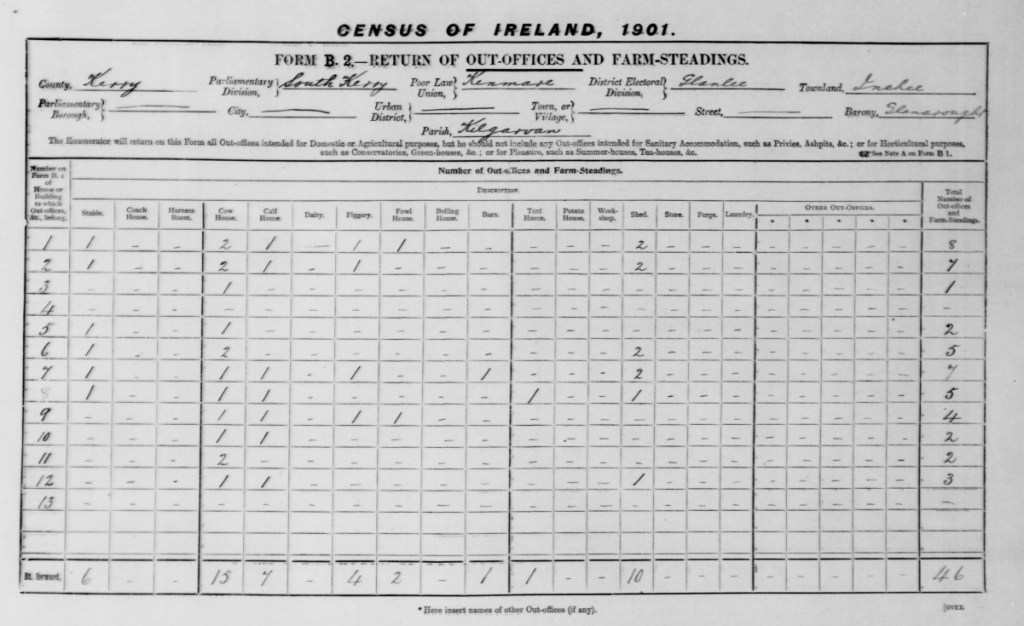 CENSUS OF IRELAND, 1901.
FORM B. 2.—RETURN OF OUT-OFFICES AND FARM-STEADINGS.
County, Kerry Parliamentary Division, South Kerry Poor Law Union, Kenmare District Electoral Division, Glanlee Townland, Inchee
Parliamentary Borough, — City, — Urban District, — Town, or Village, — Street, — Barony, Glanarought
Parish, Kilgarvan
The Enumerator will return on this Form all Out-offices intended for Domestic or Agricultural purposes, but he should not include any Out-offices intended for Sanitary Accommodation, such as Privies, Ashpits, &c.; or for Horticultural purposes,
such as Conservatories, Green-houses, &c.; or for Pleasure, such as Summer-houses, Tea-houses, &c. ☞ See Note A on Form B 1.
Number on Form B. 1 of House or Building to which Out-offices, &c., belong.
Number of Out-offices and Farm-Steadings.
DESCRIPTION.
Stable. Coach House. Harness Room. Cow House. Calf House. Dairy. Piggery. Fowl House. Boiling House. Barn. Turf House. Potato House. Work-shop. Shed. Store. Forge. Laundry. OTHER OUT-OFFICES. * * * * * Total Number of Out-offices and Farm-Steadings.
1 1 – – 2 1 – 1 1 – – – – – 2 – – – – – – – – 8
2 1 – – 2 1 – 1 – – – – – – 2 – – – – – – – – 7
3 – – – 1 – – – – – – – – – – – – – – – – – – 1
4 – – – – – – – – – – – – – – – – – – – – – – –
5 1 – – 1 – – – – – – – – – – – – – – – – – – 2
6 1 – – 2 – – – – – – – – – 2 – – – – – – – – 5
7 1 – – 1 1 – 1 – – 1 – – – 2 – – – – – – – – 7
8 1 – – 1 1 – – – – – 1 – – 1 – – – – – – – – 5
9 – – – 1 1 – 1 1 – – – – – – – – – – – – – – 4
10 – – – 1 1 – – – – – – – – – – – – – – – – – 2
11 – – – 2 – – – – – – – – – – – – – – – – – – 2
12 – – – 1 1 – – – – – – – – 1 – – – – – – – – 3
13 – – – – – – – – – – – – – – – – – – – – – – –
Bt. forward, 6 – – 15 7 – 4 2 – 1 1 – – 10 – – – – – – – – 46
* Here insert names of other Out-offices (if any).
[OVER.